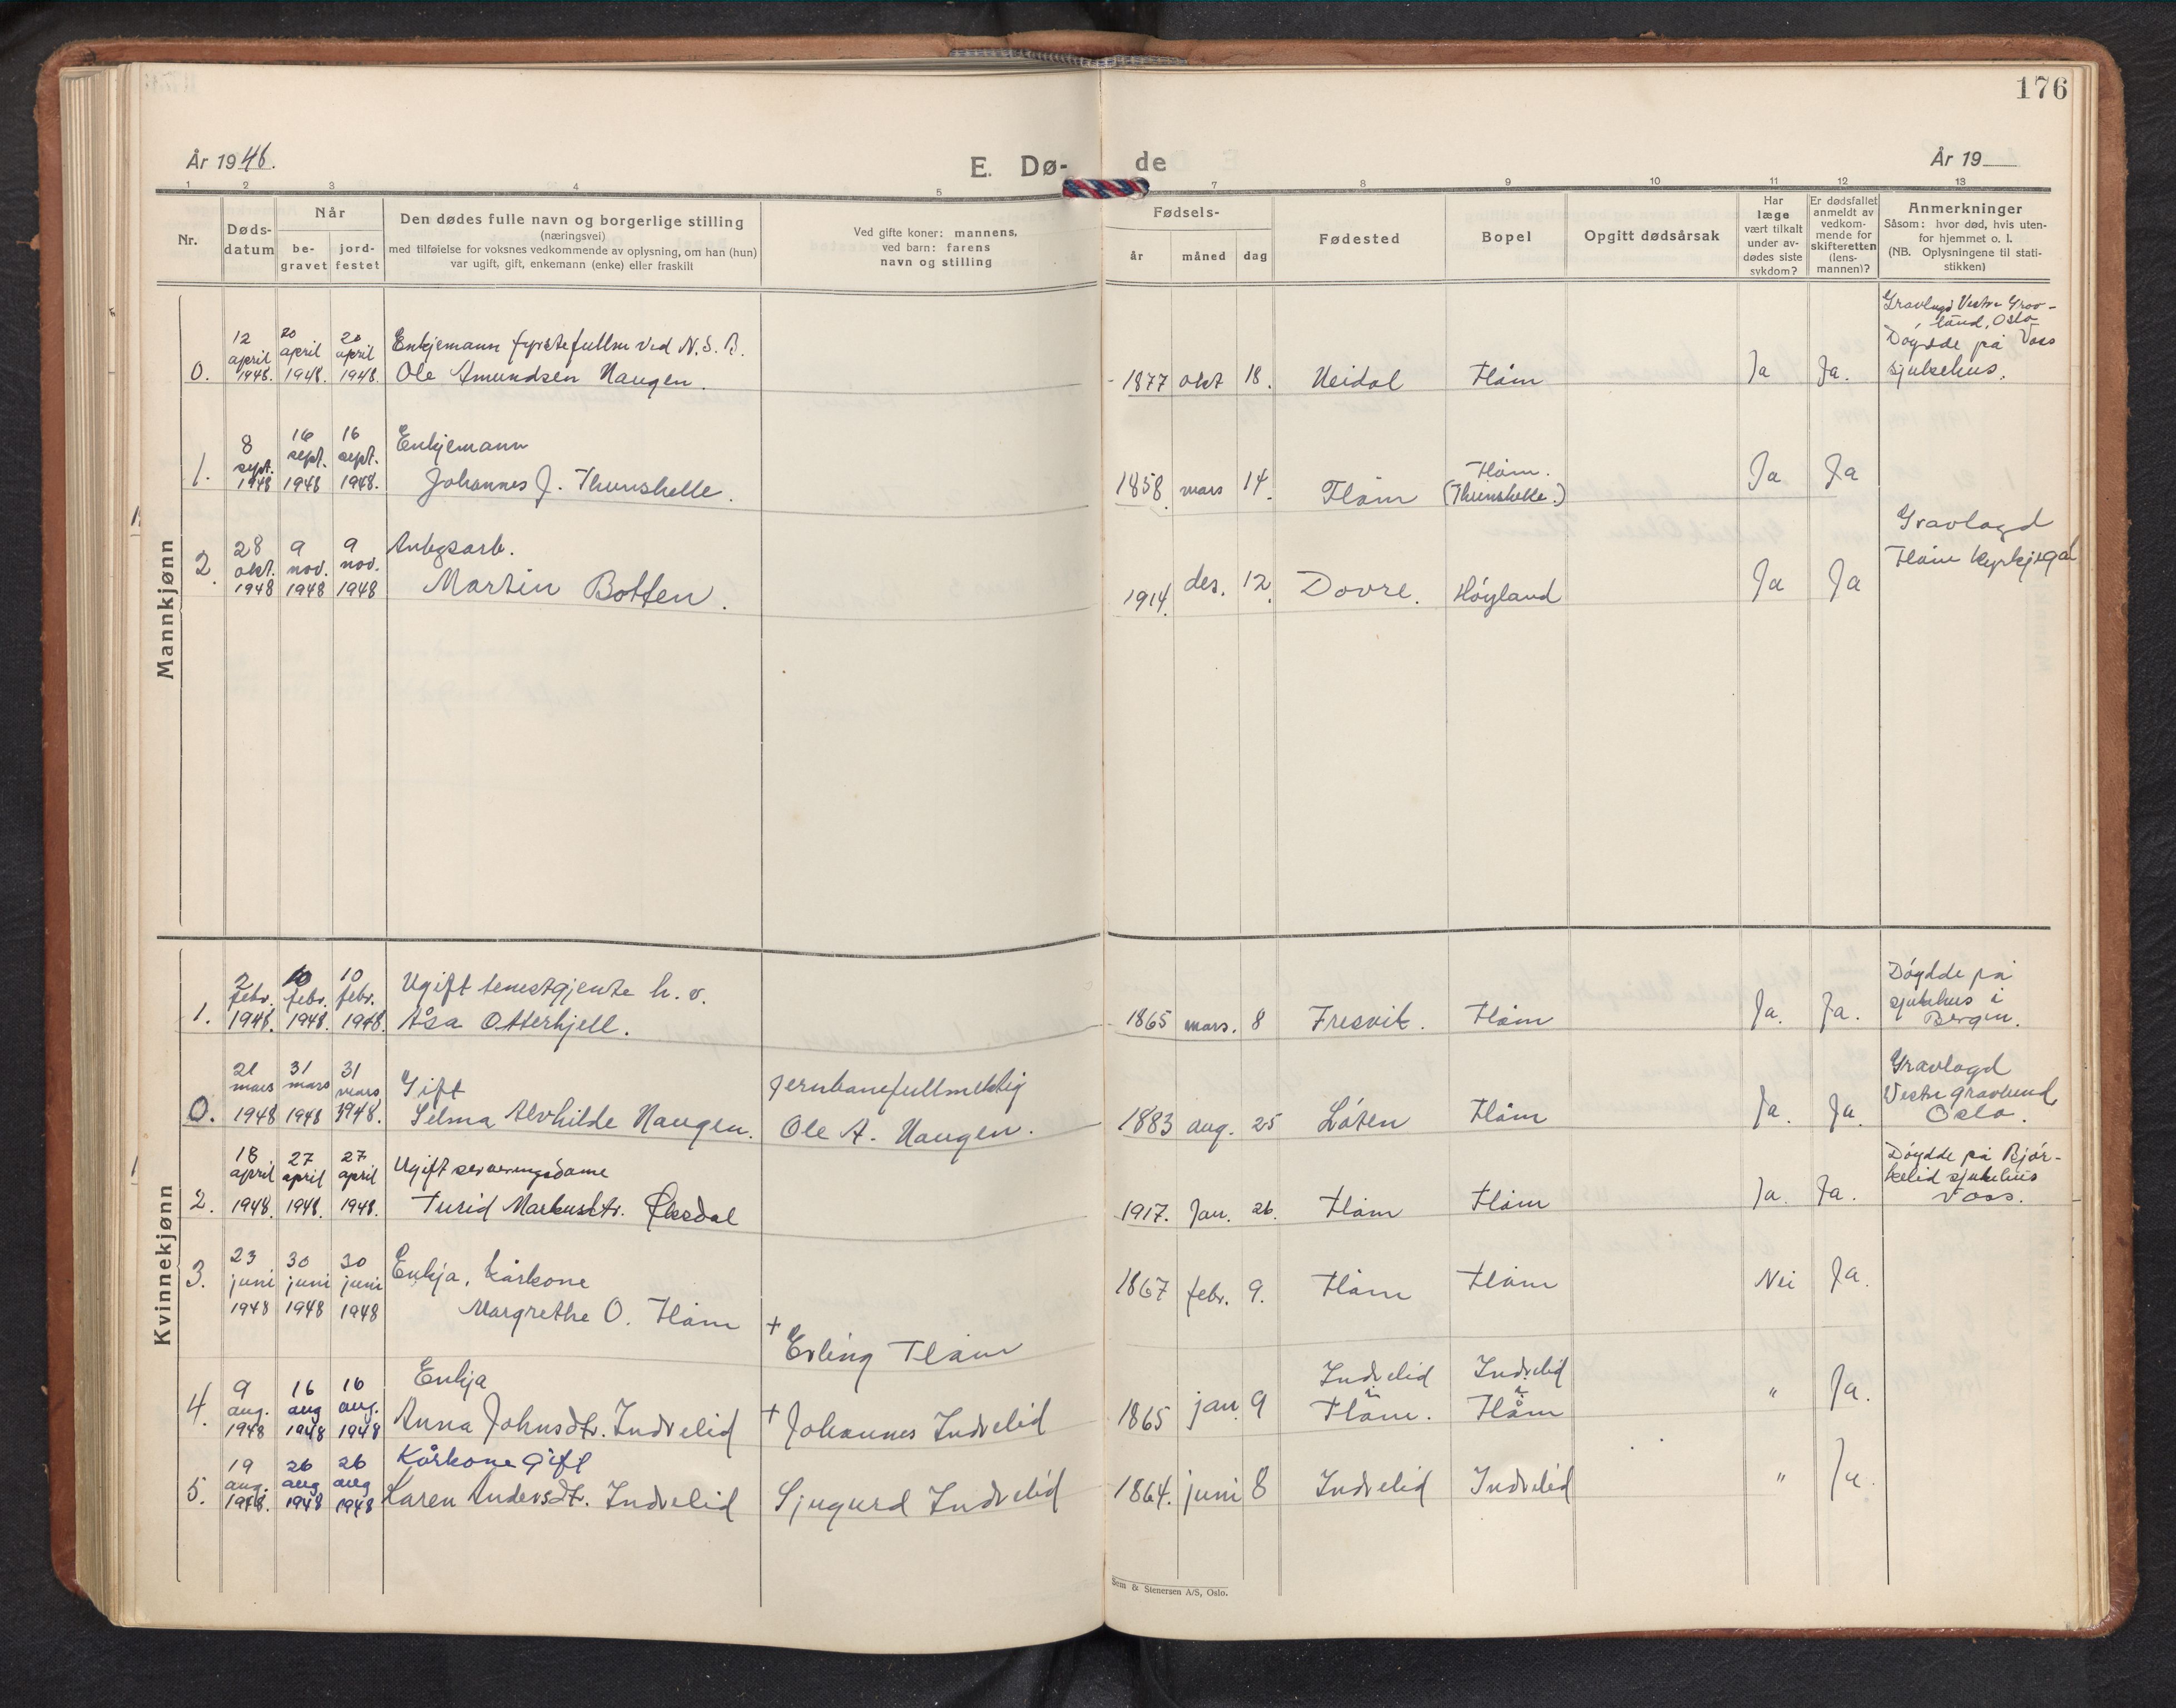 176
År 1948.
E. Dø-
de
År 19
1 2 3 4 5 7 8 9 10 11 12 13
Nr.
Døds-
datum
Når
be-
gravet
jord-
festet
Den dødes fulle navn og borgerlige stilling
(næringsvei)
med tilføielse for voksnes vedkommende av oplysning, om han (hun)
var ugift, gift, enkemann (enke) eller fraskilt
Ved gifte koner: mannens,
ved barn: farens
navn og stilling
Fødsels-
år
måned
dag
Fødested
Bopel
Opgitt dødsårsak
Har
læge
vært tilkalt
under av-
dødes siste
sykdom?
Er dødsfallet
anmeldt av
vedkom-
mende for
skifteretten
(lens-
mannen)?
Anmerkninger
Såsom: hvor død, hvis uten-
for hjemmet o. l.
(NB. Oplysningene til stati-
stikken)
Mannkjønn
0.
12
april
1948.
20
april
1948.
20
april
1948.
Enkjemann fyrstefullm ved N. S. B.
Ole Amundsen Haugen.
1877 okt 18. Heidal Flåm Ja Ja.
Gravlagd Vestre Grav-
lund, Oslo
Døydde på Voss
sjukehus.
1.
8
sept.
1948
16
sept.
1948
16
sept.
1948.
Enkjemann
Johannes J. Thunshelle.
1858 mars 14. Flåm
Flåm.
(Thunshelle.)
Ja Ja
2.
28
okt.
1948
9
nov.
1948
9
nov.
1948
Anlegsarb.
Martin Botten.
1914. des. 12. Dovre. Høyland Ja Ja
Gravlagd
Flåm kyrkjegard
Kvinnekjønn
1.
2
febr.
1948.
10
febr.
1948.
10
febr.
1948.
Ugift tenestgjente h. v.
Åsa Otterhjell.
1865 mars. 8 Fresvik. Flåm Ja. Ja.
Døydde på
sjukehus i
Bergen.
0.
21
mars
1948
31
mars
1948
31
mars
1948.
Gift
Selma Alvhilde Haugen.
Jernbanefullmektig
Ole A. Haugen.
1883 aug. 25 Løten Flåm Ja. Ja.
Gravlagd
Vestre gravlund,
Oslo.
2.
18
april
1948.
27
april
1948.
27
april
1948.
Ugift serveringsdame
Turid Markusdtr. Øksdal
1917. Jan. 26. Flåm Flåm Ja. Ja.
Døydde på Bjør-
kelid sjukehus
Voss.
3.
23
juni
1948
30
juni
1948
30
juni
1948
Enkja, kårkone
Margrethe O. Flåm
+
Erling Flåm
1867 febr. 9. Flåm Flåm Nei Ja.
4.
9
aug.
1948
16
aug
1948
16
aug.
1948
Enkja
Anna Johnsdtr. Indrelid
+ Johannes Indrelid
1865 jan. 9
Indrelid
i
Flåm.
Indrelid
i
Flåm
" Ja.
5.
19
aug.
1948.
26
aug
1948
26
aug
1948
Kårkone Gift
Karen Andersdtr. Indrelid
Sjugurd Indrelid
1864. juni 8 Indrelid Indrelid " Ja.
Sem & Stenersen A/S, Oslo.